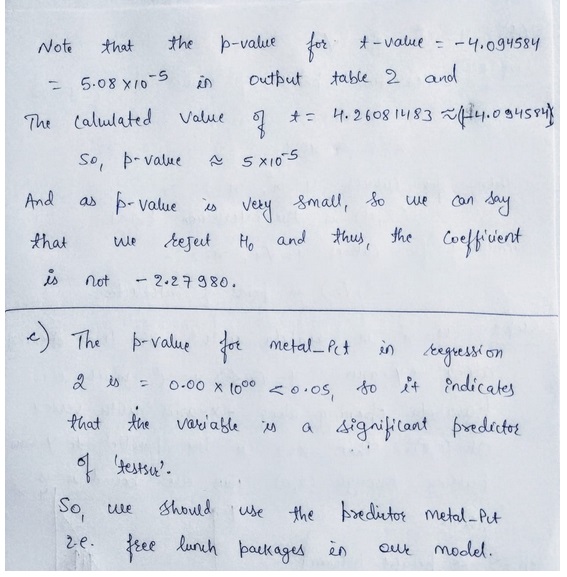 Note that the p-value for t-value = -4.094584
= 5.08 × 10⁻⁵ in output table 2 and
The calulated value of t = 4.26081483 ≈ |-4.094584|
So, p-value ≈ 5 × 10⁻⁵
And as p-value is very small, so we can say
that we reject H₀ and thus, the coefficient
is not -2.27980.
e) The p-value for metal_Pct in regression
2 is = 0.00 × 10⁰⁰ < 0.05, so it indicates
that the variable is a significant predictor
of 'testscr'.
So, we should use the predictor metal_Pct
i.e. free lunch packages in our model.